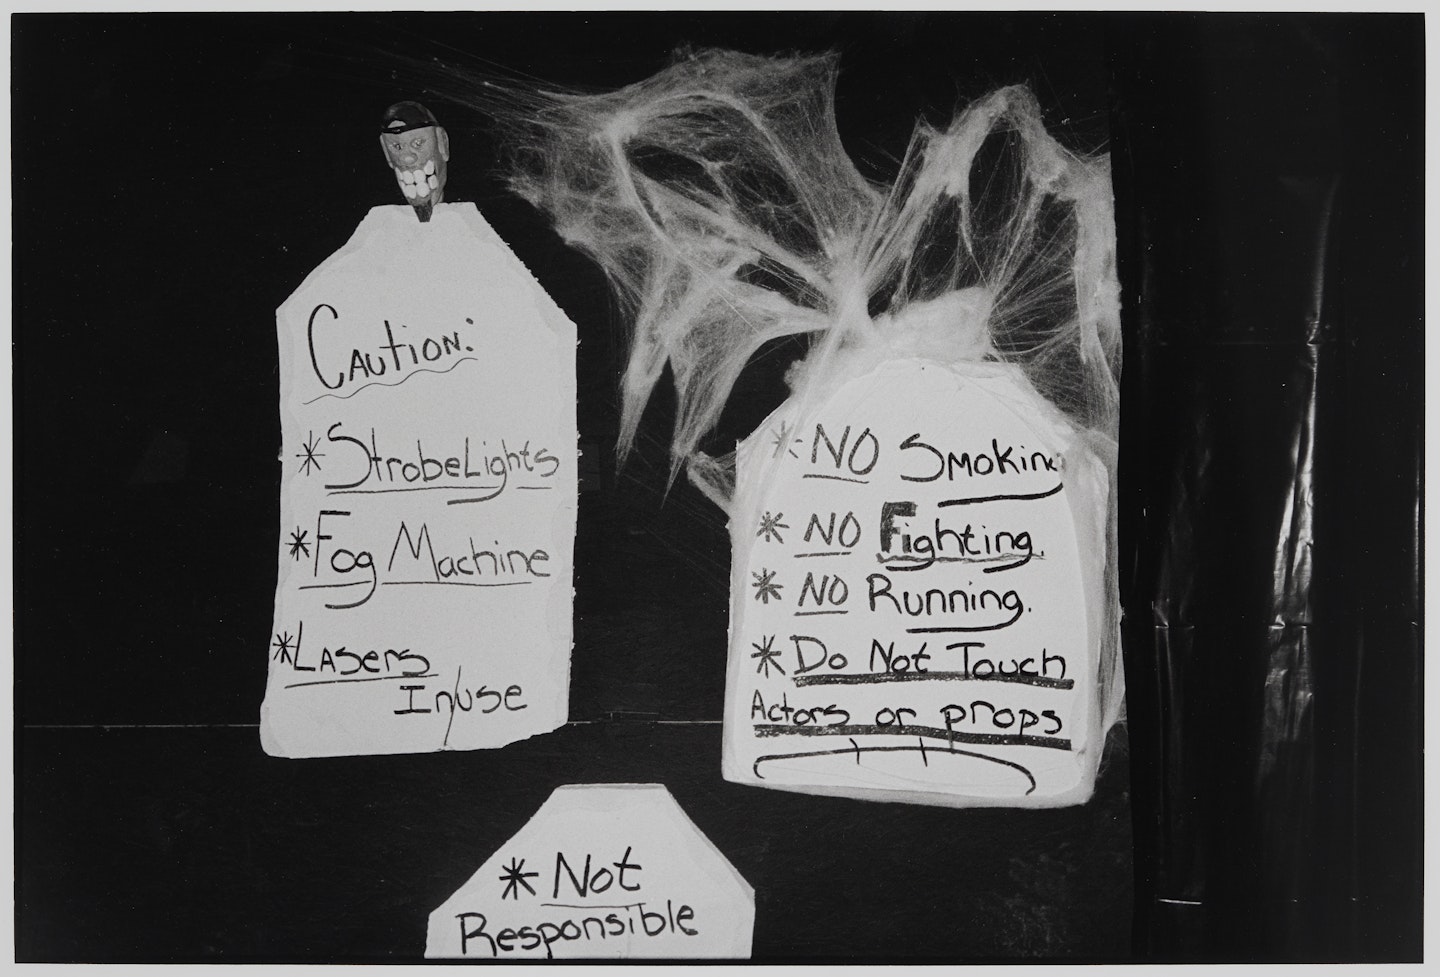 Caution:
* Strobe Lights
* Fog Machine
* Lasers
In/use
* NO Smoking
* NO Fighting.
* NO Running.
* Do Not Touch
Actors or props
* Not
Responsible